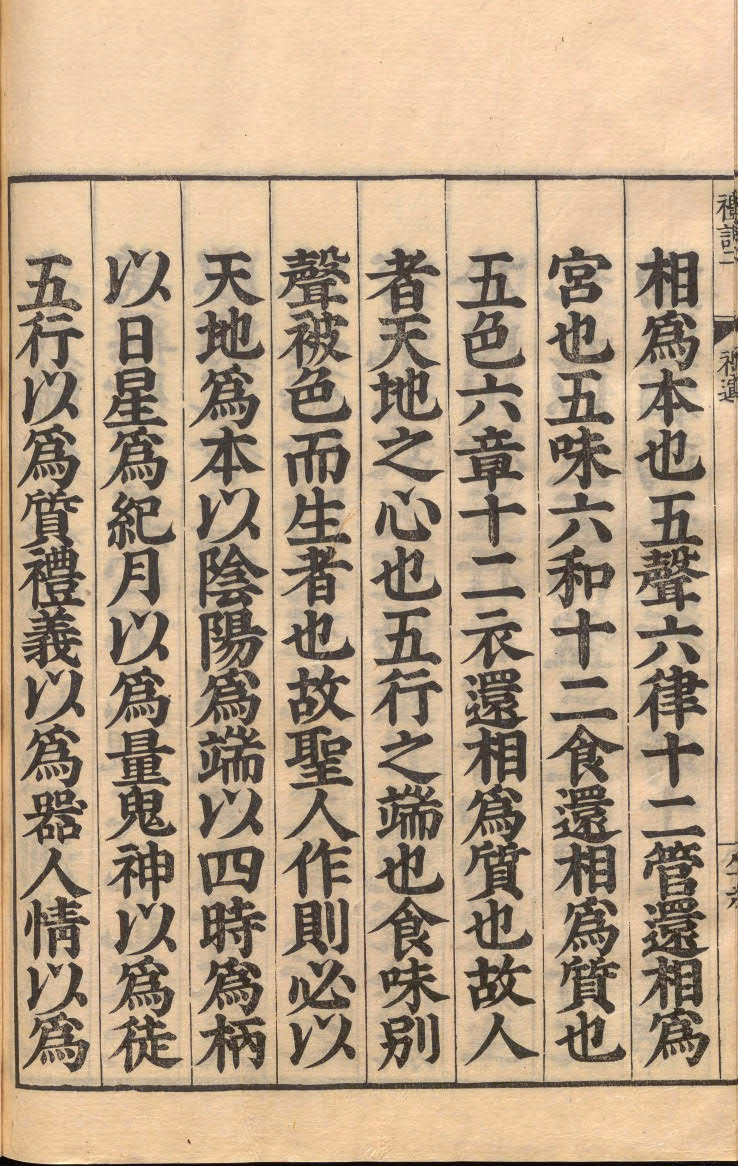 相爲本也五聲六律十二管還相爲
宮也五味六和十二食還相爲質也
五色六章十二衣還相爲質也故人
者天地之心也五行之端也食味別
聲被色而生者也故聖人作則必以
天地爲本以陰陽爲端以四時爲柄
以日星爲紀月以爲量鬼神以爲徒
五行以爲質禮義以爲器人情以爲